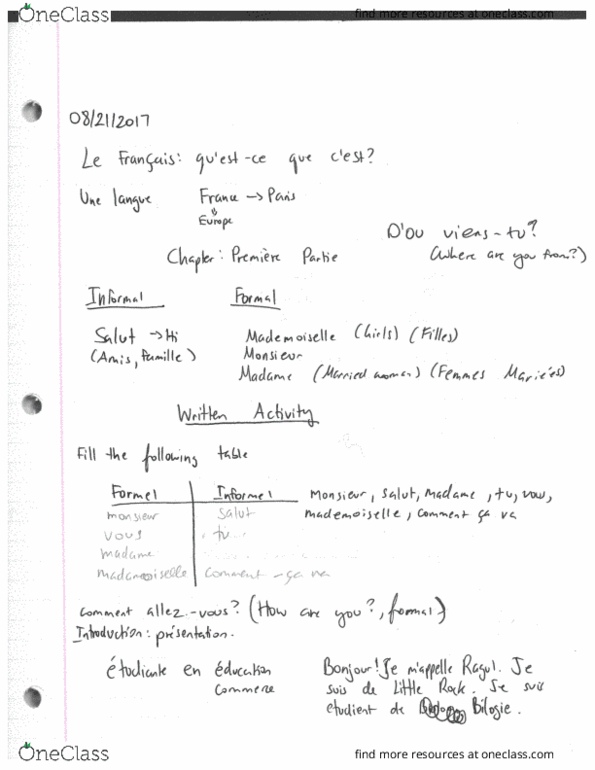 OneClass find more resources at oneclass.com
08/21/2017
Le Français: qu'est-ce que c'est?
Une langue France → Paris
Europe
D'ou viens-tu?
(Where are you from?)
Chapter: Première Partie
Informal Formal
Salut → Hi Mademoiselle (Girls) (Filles)
(Amis, famille) Monsieur
Madame (Married woman) (Femmes Mariées)
Written Activity
Fill the following table
Formel Informel Monsieur, salut, Madame, tu, vous,
monsieur Salut mademoiselle, comment ça va
vous tu
madame
madamoiselle comment-ça va
Comment allez-vous? (How are you?, formal)
Introduction: présentation.
étudiante en éducation Bonjour! Je m'appelle Ragul. Je
commerce suis de Little Rock. Je suis
etudient de Bilogie.
OneClass find more resources at oneclass.com